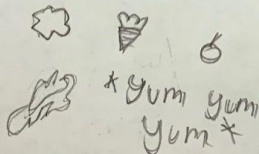 *yum yum
yum*